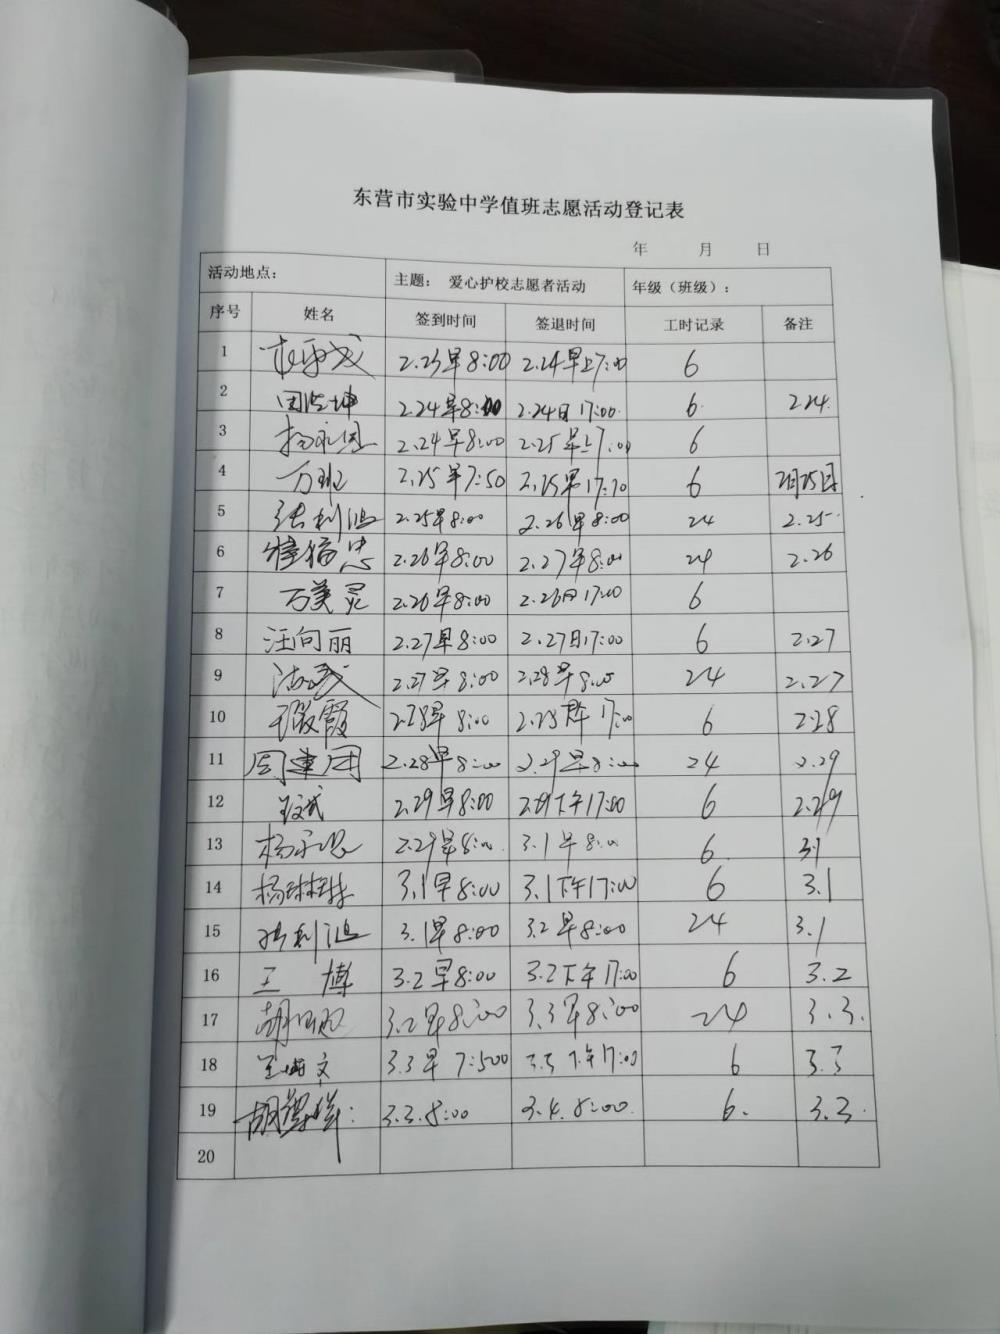 东营市实验中学值班志愿活动登记表
年 月 日
活动地点： 主题： 爱心护校志愿者活动 年级（班级）：
序号 姓名 签到时间 签退时间 工时记录 备注
1 2.23早8:00 2.24早上7:00 6
2 2.24早8:00 2.24日17:00. 6. 2.24.
3 杨永恩 2.24早8:00 2.25早上7:00 6
4 万班 2.25早7:50 2.25早17:10 6 2月25日
5 张利鸿 2.25早8:00 2.26早8:00 24 2.25.
6 2.26早8:00 2.27早8:00 24 2.26
7 万美灵 2.26早8:00 2.26日17:00 6
8 汪向丽 2.27早8:00 2.27日17:00 6 2.27
9 2.27早8:00 2.28早8:00 24 2.27
10 霞 2.28早8:00 2.28 17:00 6 2.28
11 周建团 2.28早8:00 2.29早8:00 24 2.29
12 2.29早8:00 2.29下午17:00 6 2.29
13 杨永恩 2.29早8:00 3.1早8:00 6. 3.1
14 杨 3.1早8:00 3.1下午17:00 6 3.1
15 张利鸿 3.1早8:00 3.2早8:00 24 3.1
16 王博 3.2早8:00 3.2下午17:00 6 3.2
17 胡 3.2早8:00 3.3早8:00 24 3.3.
18 文 3.3早7:500 3.3下午17:00 6 3.3
19 胡 3.3.8:00 3.4.8:00. 6. 3.3.
20